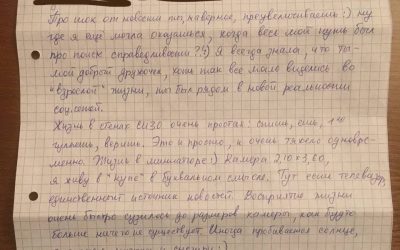 Про шок от новости ты, наверное, преувеличиваешь :) ну
где я ещё могла оказаться, когда весь мой путь был
про поиск справедливости??:) Я всегда знала, что ты
мой добрый дружочек, хоть так все мало виделись во
"взрослой" жизни, ты был рядом в новой реальности
соц.сетей.
Жизнь в стенах СИЗО очень простая: спишь, ешь,
гуляешь, веришь. Это и просто, и очень тяжело одновре-
менно. Жизнь в миниатюре:) Камера 2,10 х 3,60,
я живу в "купе" в буквальном смысле. Тут есть телевизор,
единственный источник новостей. Восприятие жизни
очень быстро сузилось до размеров камеры, как будто
больше ничего не существует. Иногда пробивается солнце,